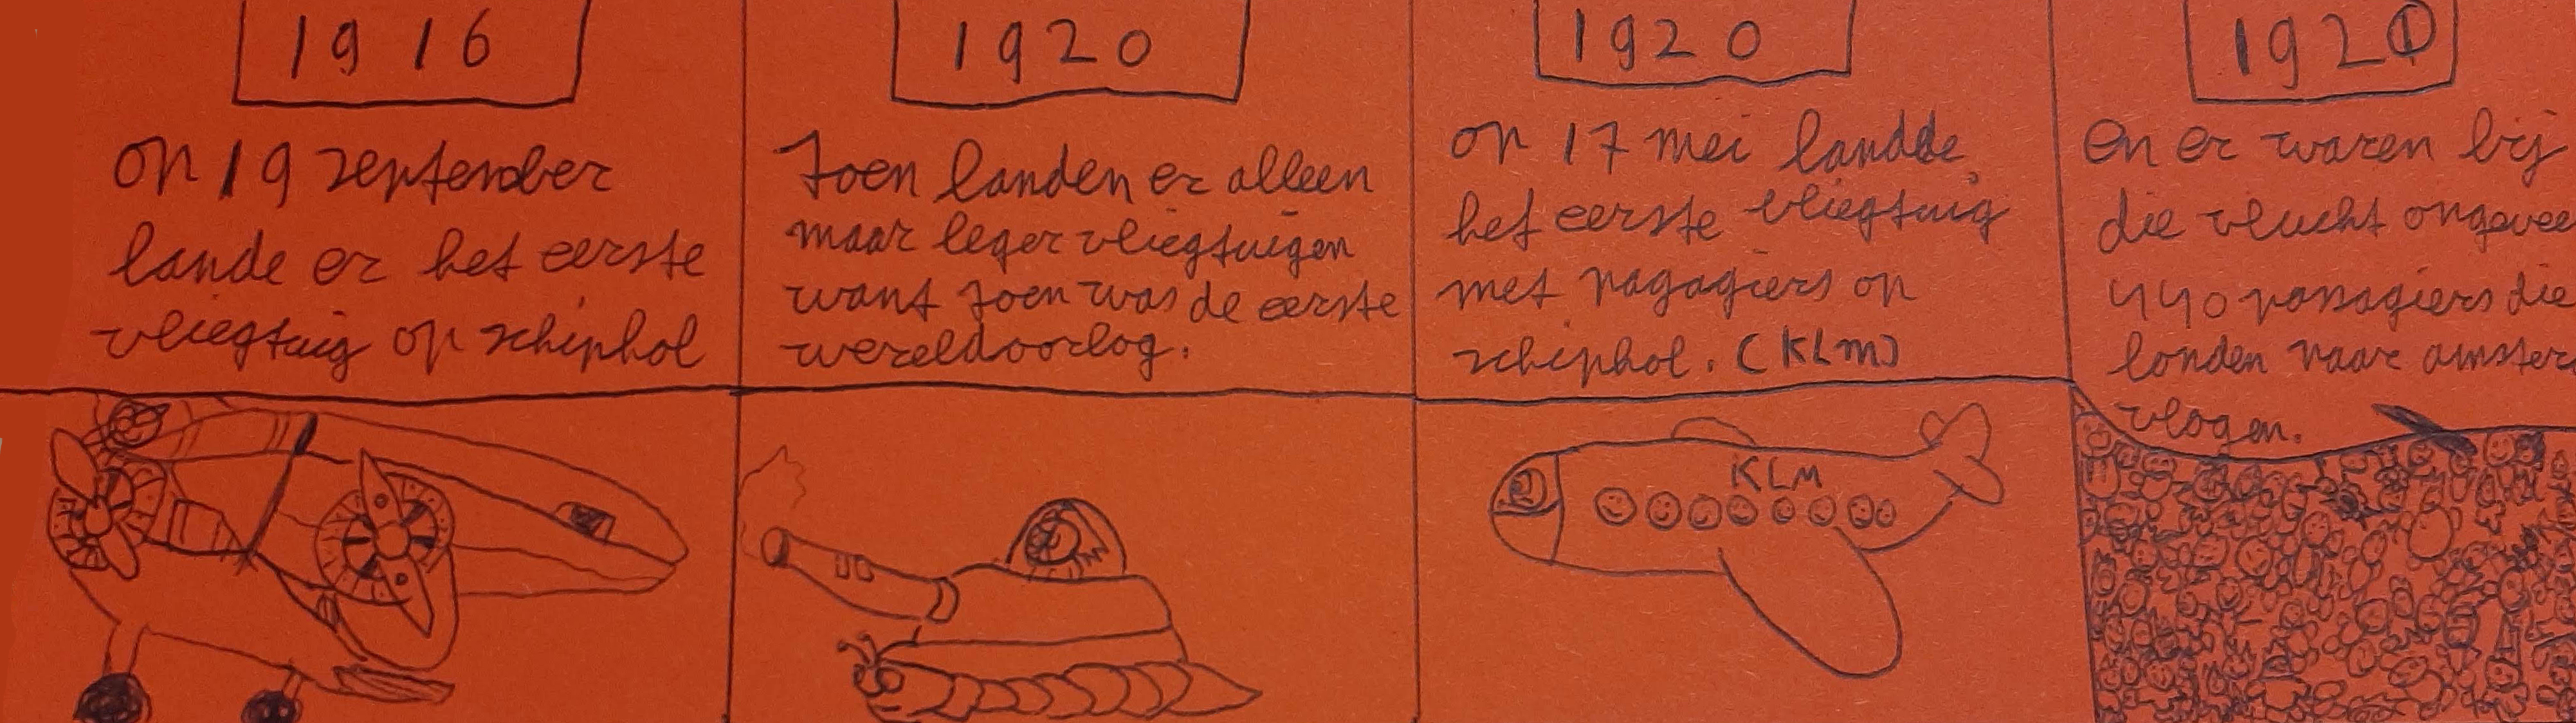 1916
op 19 september
lande er het eerste
vliegtuig op schiphol
1920
toen landen er alleen
maar leger vliegtuigen
want toen was de eerste
wereldoorlog.
1920
op 17 mei landde
het eerste vliegtuig
met pagagiers op
schiphol. (KLM)
KLM
1921
en er waren bij
die vlucht ongevee
440 passagiers die
londen naar amster
vlogen.